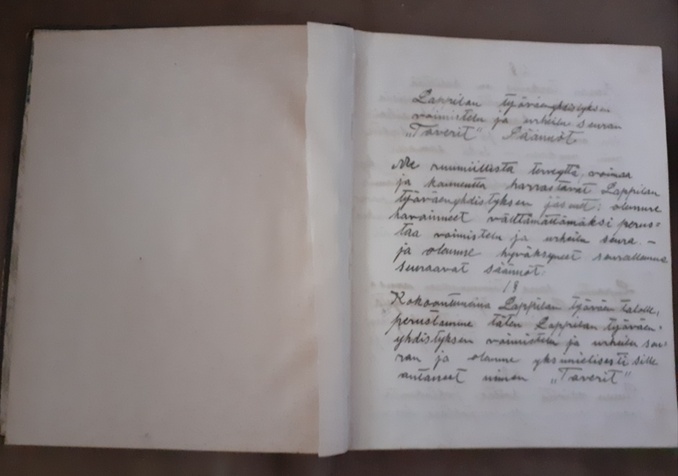 Lappilan työväenyhdistyksen
voimistelu ja urheilu seuran
„Toverit" Säännöt.
Me ruumiillista terveyttä, voimaa
ja kauneutta harrastavat Lappilan
työväenyhdistyksen jäsenet; olemme
havainneet välttämättömäksi perus-
taa voimistelu ja urheilu seura –
ja olemme hyväksyneet seurallemme
seuraavat säännöt
1 §
Kokoontuneina Lappilan työväen talolle,
perustamme täten Lappilan työväen-
yhdistyksen voimistelu ja urheilu seu-
ran ja olemme yksimielisesti sille
antaneet nimen „Toverit"